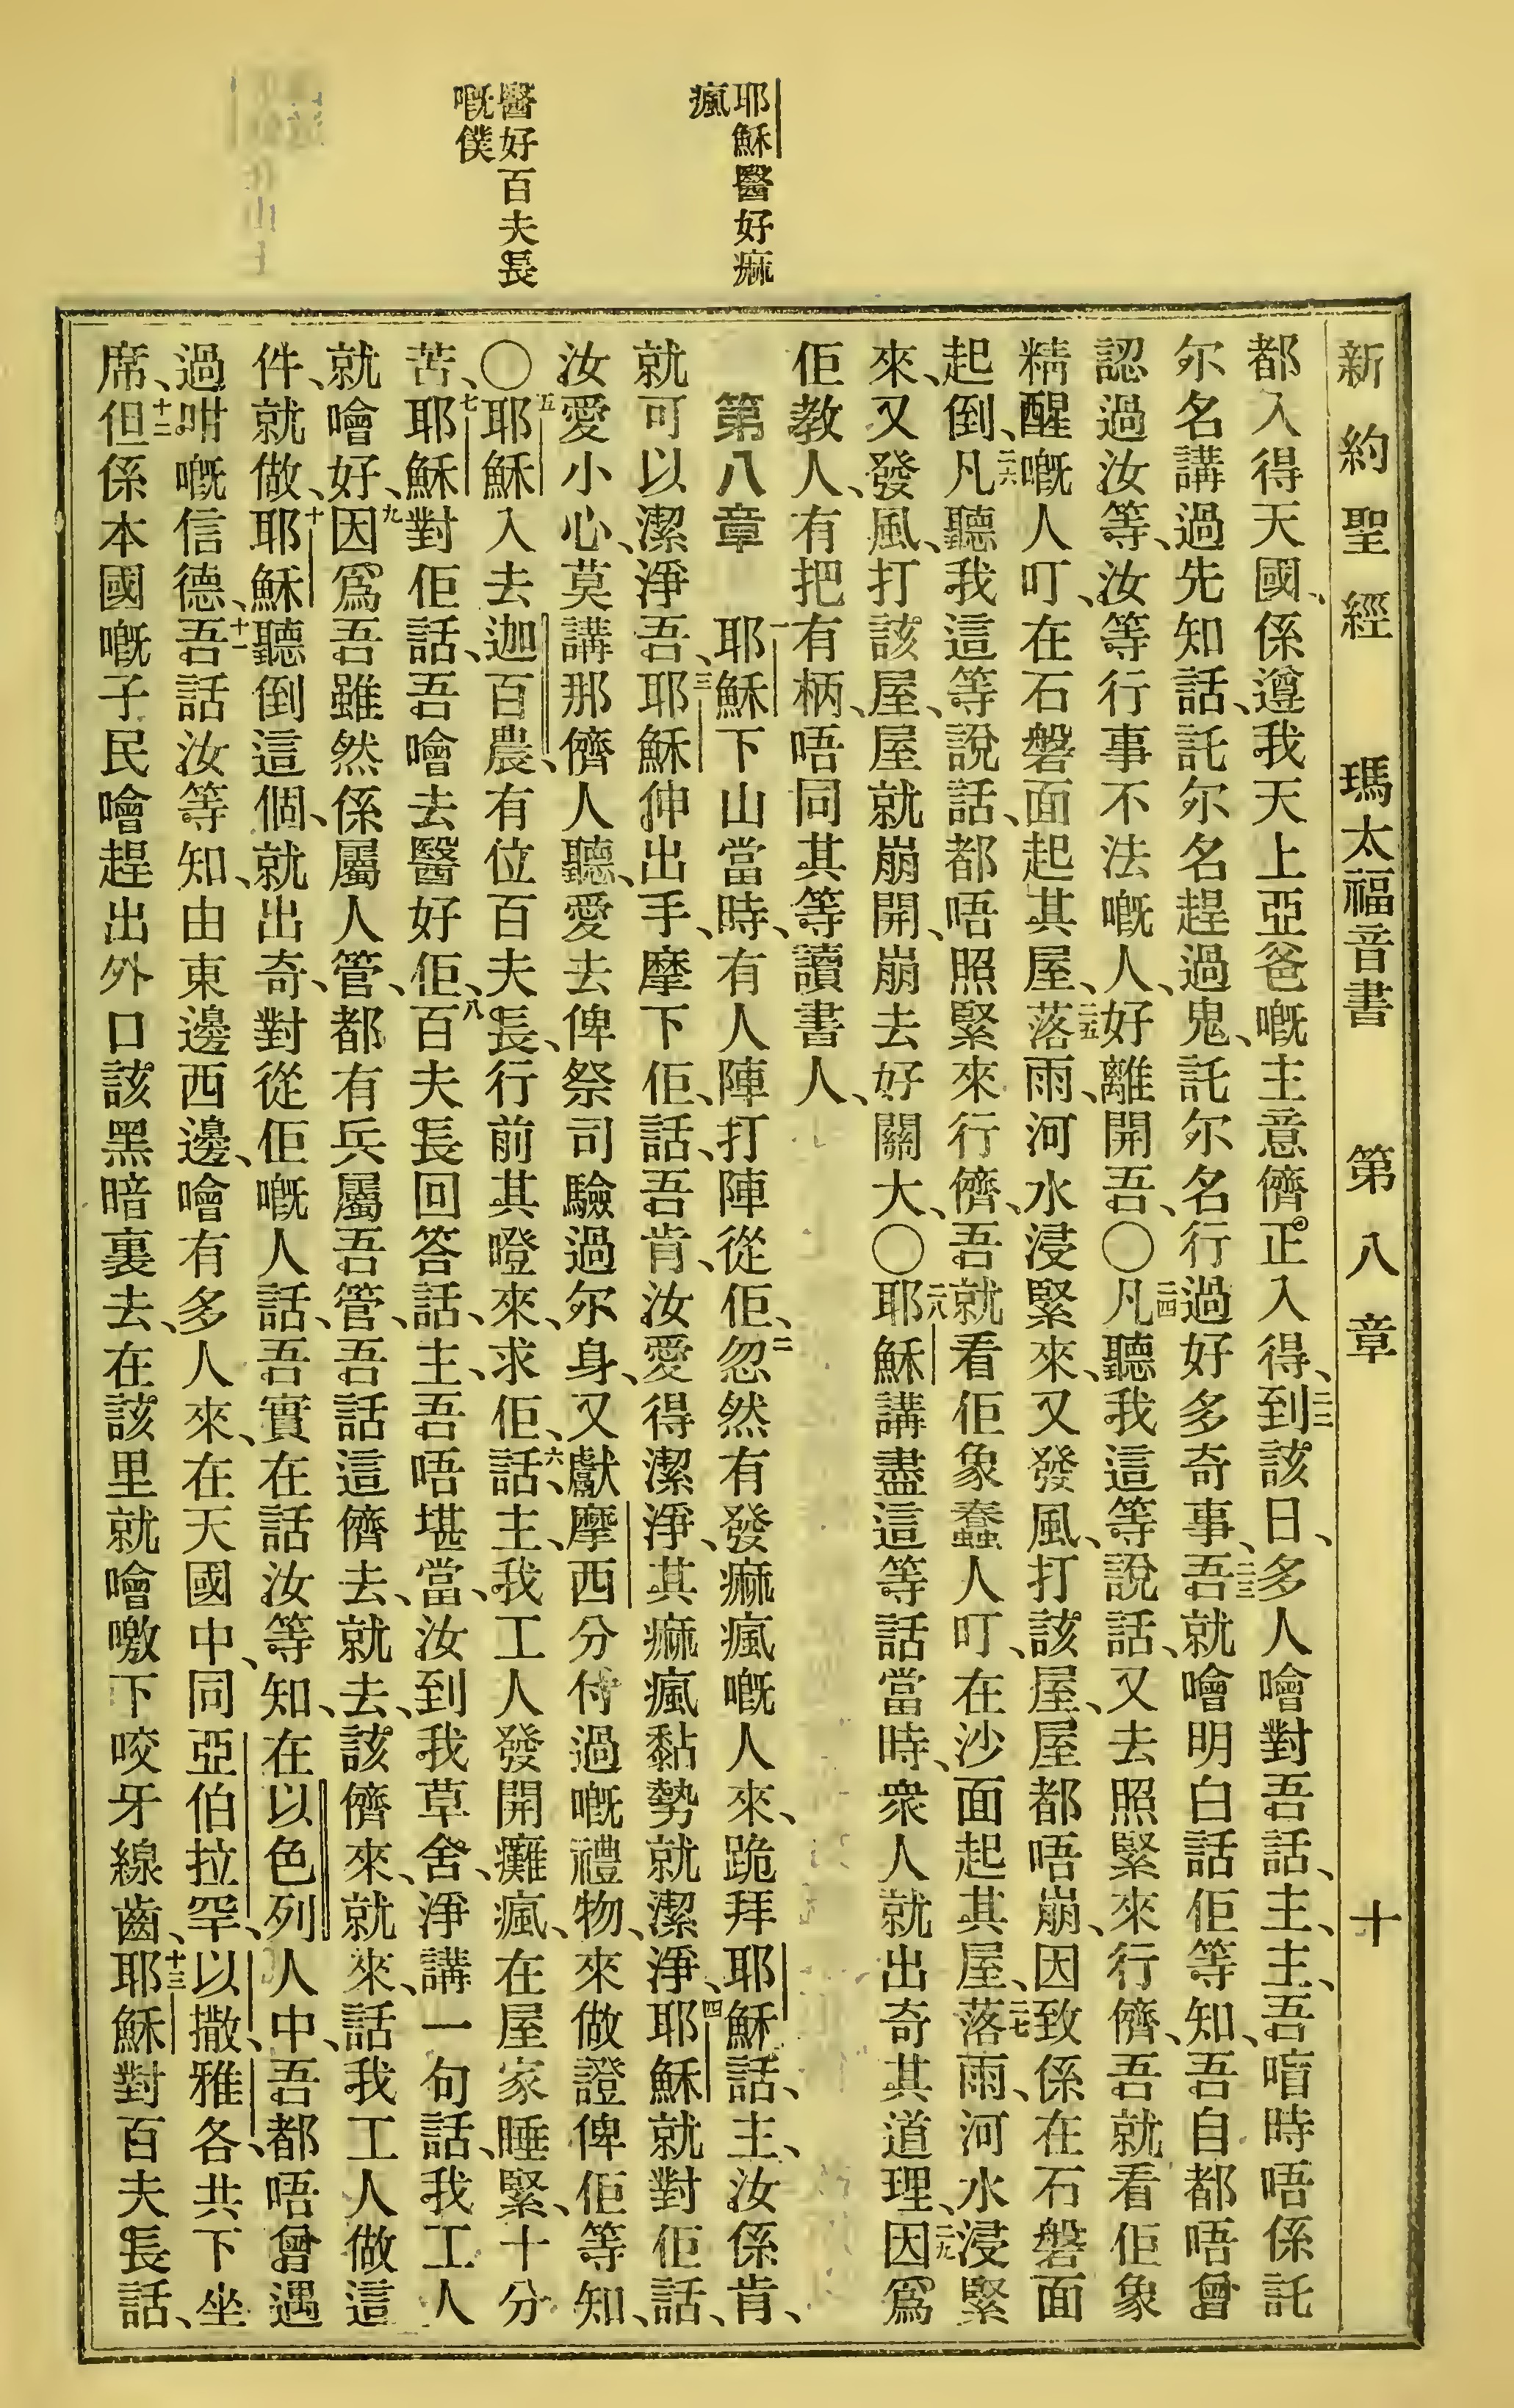 耶穌醫好痲
瘋
醫好百夫長
嘅僕
新約聖經　瑪太福音書　第八章　十
都入得天國、係遵我天上亞爸嘅主意儕正入得、二二到該日、多人噲對吾話、主、主、吾喑時唔係託
尔名講過先知話、託尔名趕過鬼、託尔名行過好多奇事、二三吾就噲明白話佢等知、吾自都唔曾
認過汝等、汝等行事不法嘅人、好離開吾、〇二四凡聽我這等說話、又去照緊來行儕、吾就看佢象
精醒嘅人叮、在石磐面起其屋、二五落雨、河水浸緊來、又發風、打該屋、屋都唔崩、因致係在石磐面
起倒、二六凡聽我這等說話、都唔照緊來行儕、吾就看佢象蠢人叮、在沙面起其屋、二七落雨、河水浸緊
來、又發風、打該屋、屋就崩開、崩去好關大、〇二八耶穌講盡這等話當時、衆人就出奇其道理、二九因爲
佢教人、有把有柄、唔同其等讀書人、
第八章　一耶穌下山當時、有人陣打陣從佢、二忽然有發痲瘋嘅人來、跪拜耶穌話、主、汝係肯、
就可以潔淨吾、三耶穌伸出手、摩下佢、話、吾肯、汝愛得潔淨、其痲瘋黏勢就潔淨、四耶穌就對佢話、
汝愛小心、莫講那儕人聽、愛去俾祭司驗過尔身、又獻摩西分付過嘅禮物、來做證俾佢等知、
〇五耶穌入去迦百農、有位百夫長、行前其噔來、求佢、六話、主、我工人發開癱瘋、在屋家睡緊、十分
苦、七耶穌對佢話、吾噲去醫好佢、八百夫長回答話、主、吾唔堪當、汝到我草舍、淨講一句話、我工人
就噲好、九因爲吾雖然係屬人管、都有兵屬吾管、吾話這儕去、就去、該儕來、就來、話我工人做這
件、就做、十耶穌聽倒這個、就出奇、對從佢嘅人話、吾實在話汝等知、在以色列人中、吾都唔曾遇
過咁嘅信德、十一吾話汝等知、由東邊西邊、噲有多人來、在天國中、同亞伯拉罕、以撒、雅各、共下坐
席、十二但係本國嘅子民噲趕出外口該黑暗裏去、在該里就噲噭下咬牙線齒、十三耶穌對百夫長話、